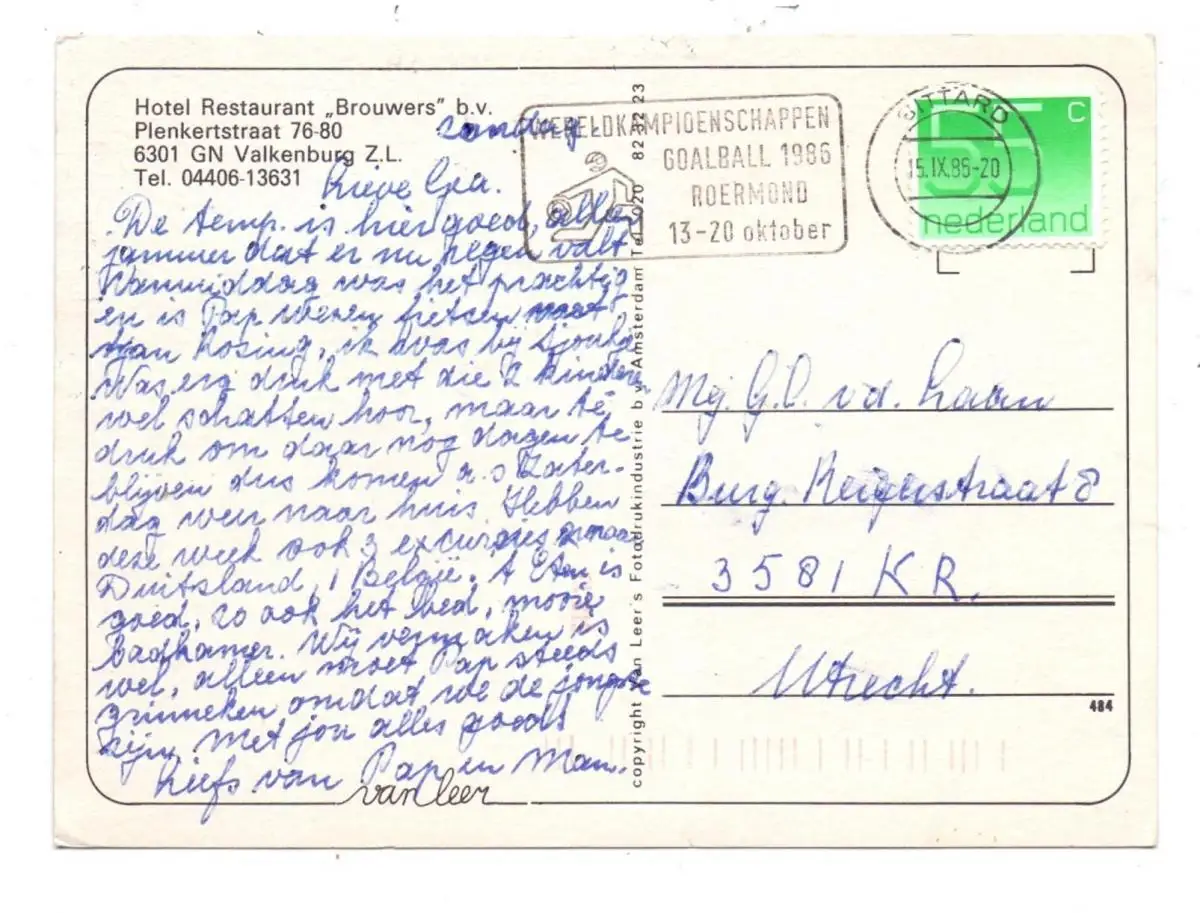 Hotel Restaurant „Brouwers” b.v.
Plenkertstraat 76-80
6301 GN Valkenburg Z.L.
Tel. 04406-13631
zondag.
Lieve Gea.
De temp. is hier goed, alleen
jammer dat er nu regen valt.
Vanmiddag was het prachtig
en is Pap wezen fietsen met
Jan Kosing, ik was bij
Was erg druk met die 2 kinderen
wel schatten hoor, maar te
druk om daar nog dagen te
blijven dus komen a.s Zater-
dag weer naar huis. Hebben
deze week ook 3 excursies 2 naar
Duitsland, 1 België. 't Eten is
goed, zo ook het bed, mooie
badkamer. Wij vermaken is
wel, alleen moet Pap steeds
grinneken omdat we de jongste
zijn. Met jou alles goed?
Liefs van Pap en Mam.
van leer
copyright Van Leer's Fotodrukindustrie b.v. Amsterdam Tel. 020
WERELDKAMPIOENSCHAPPEN
GOALBALL 1986
ROERMOND
13-20 oktober
SITTARD
15.IX.86-20
55 c
nederland
Mej. G.C. v.d. Laan
Burg. Reigerstraat 8
3581 KR.
Utrecht.
484